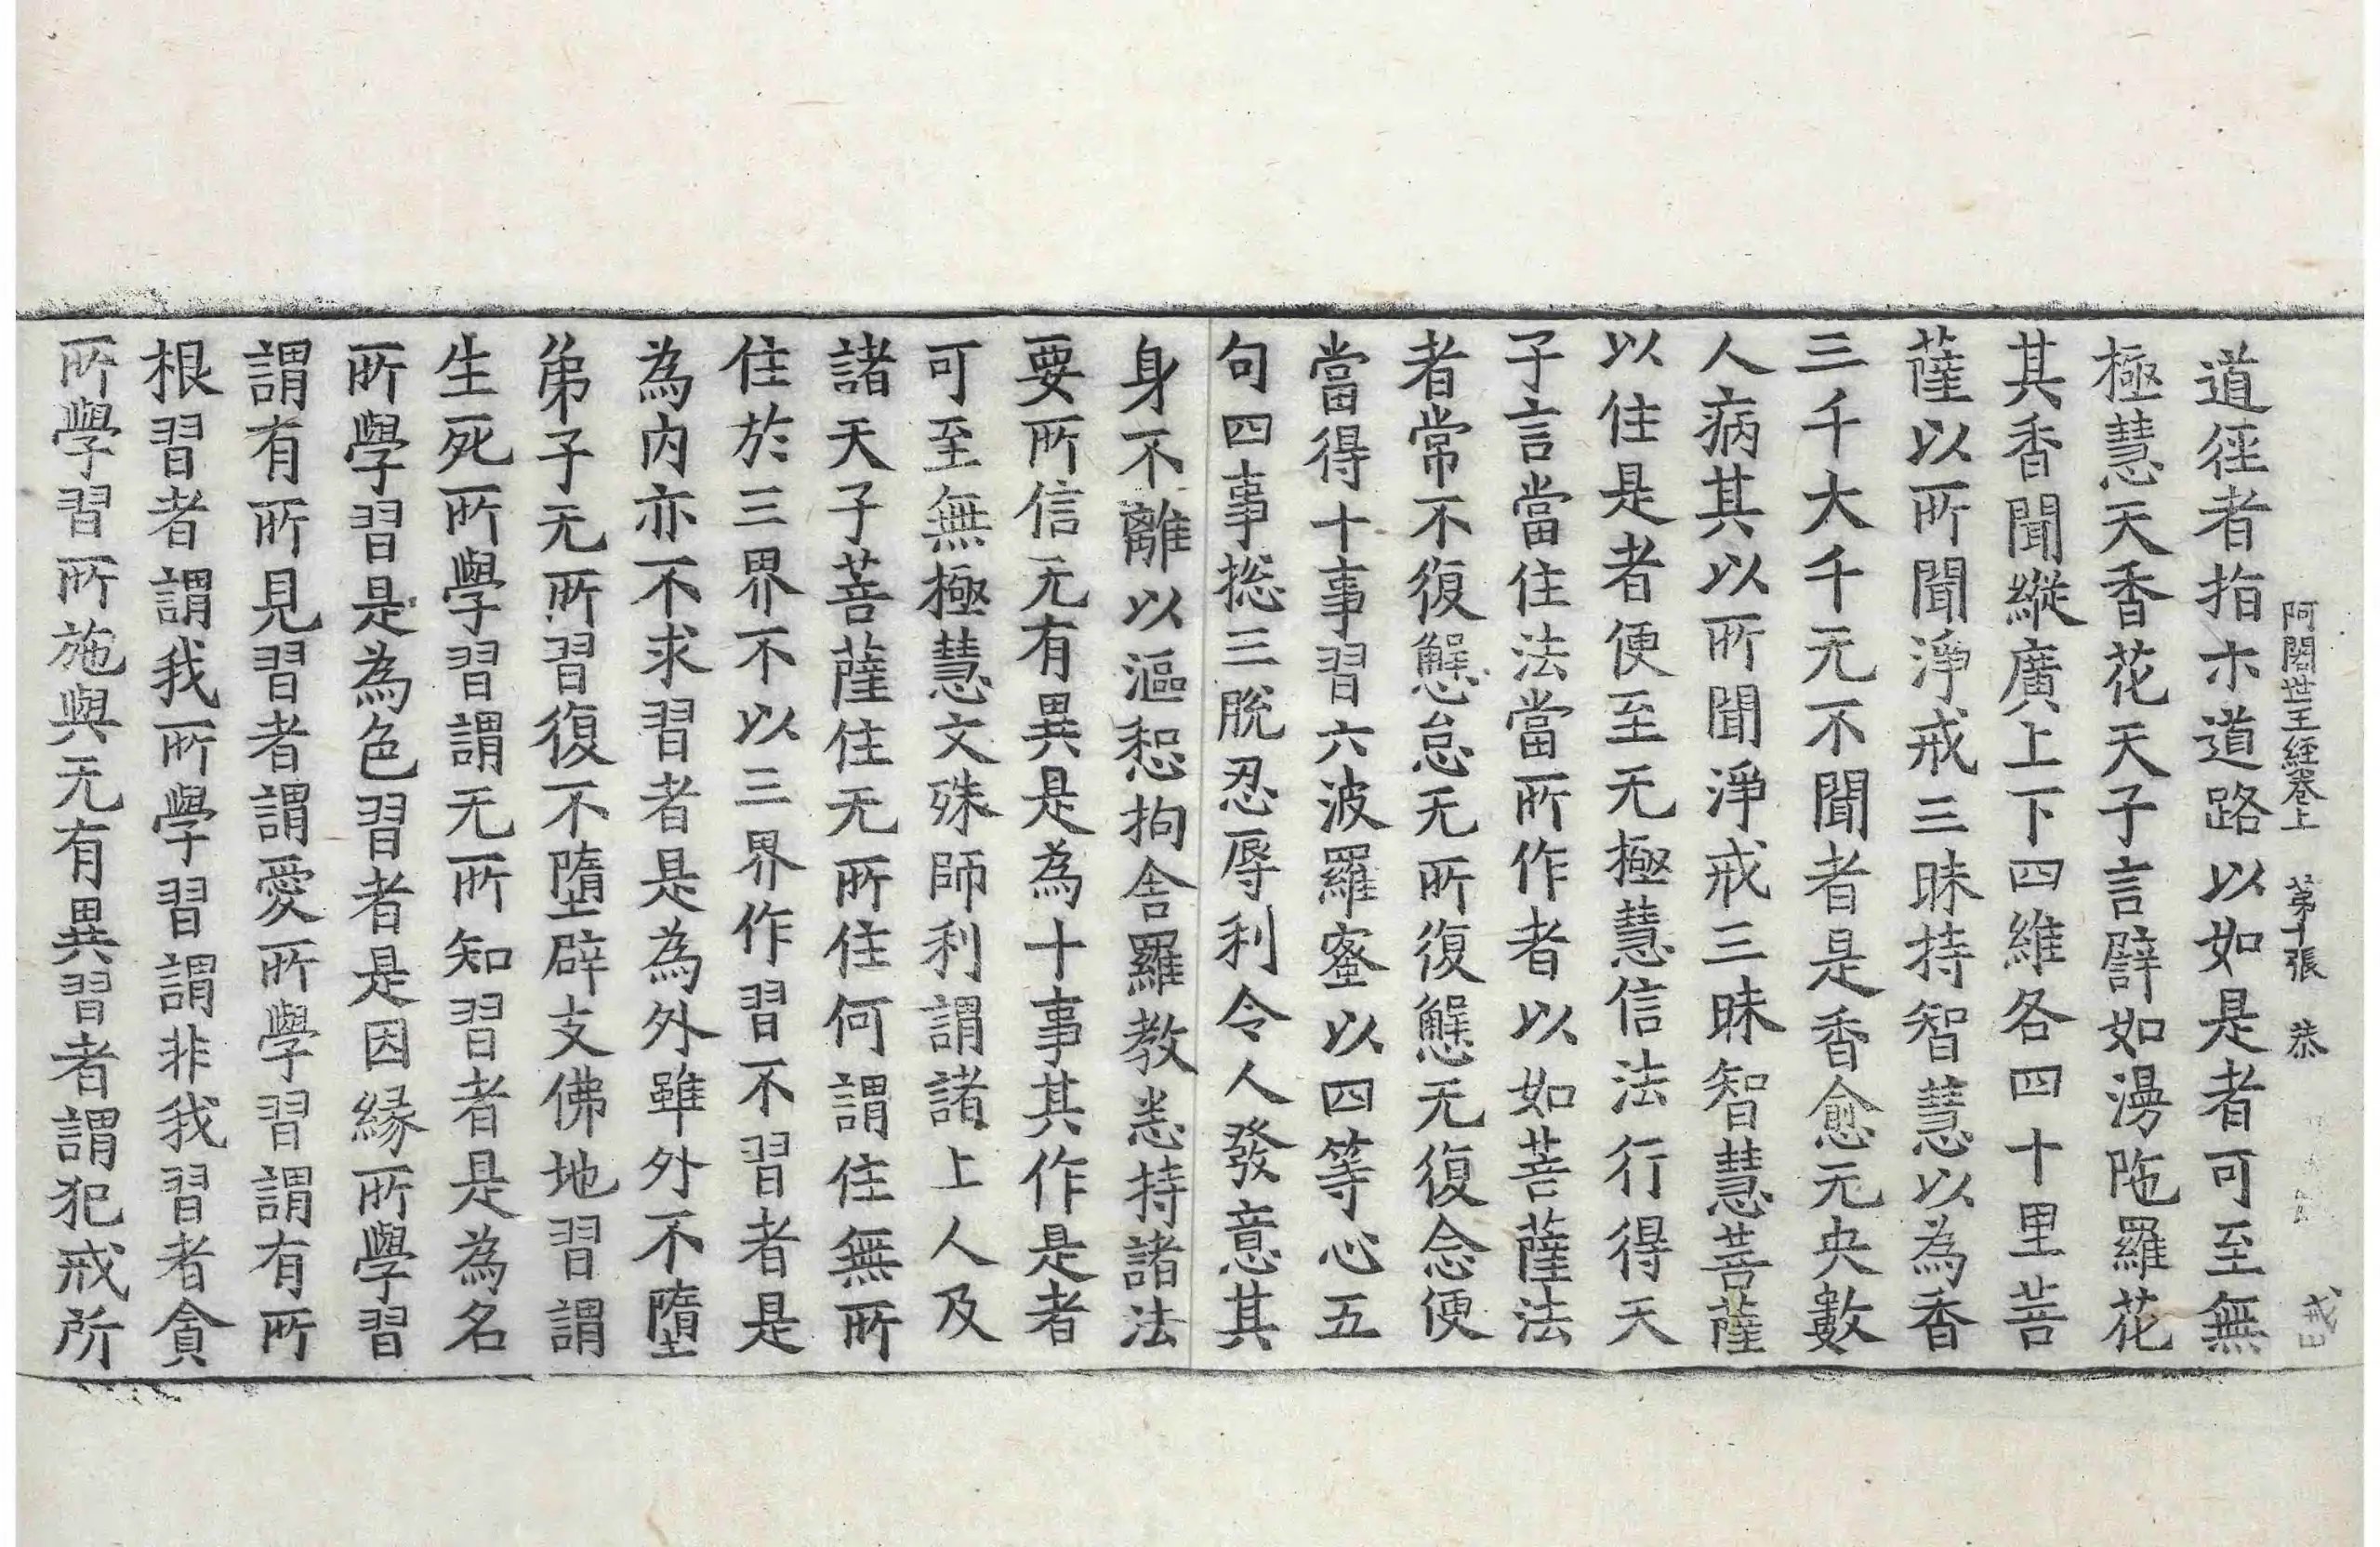 阿闍世王経卷上　第十張　恭
道徑者指示道路以如是者可至無
極慧天香花天子言譬如湯陁羅花
其香聞縱廣上下四維各四十里菩
薩以所聞淨戒三昧持智慧以為香
三千大千无不聞者是香愈无央數
人病其以所聞淨戒三昧智慧菩薩
以住是者便至无極慧信法行得天
子言當住法當所作者以如菩薩法
者常不復懈怠无所復懈无復念便
當得十事習六波羅蜜以四等心五
句四事捴三脫忍辱利令人發意其
身不離以漚惒拘舍羅教恙持諸法
要所信无有異是為十事其作是者
可至無極慧文殊師利謂諸上人及
諸天子菩薩住无所住何謂住無所
住於三界不以三界作習不習者是
為内亦不求習者是為外雖外不墮
弟子无所習復不墮辟支佛地習謂
生死所學習謂无所知習者是為名
所學習是為色習者是因縁所學習
謂有所見習者謂愛所學習謂有所
根習者謂我所學習謂非我習者貪
所學習所施與无有異習者謂犯戒所